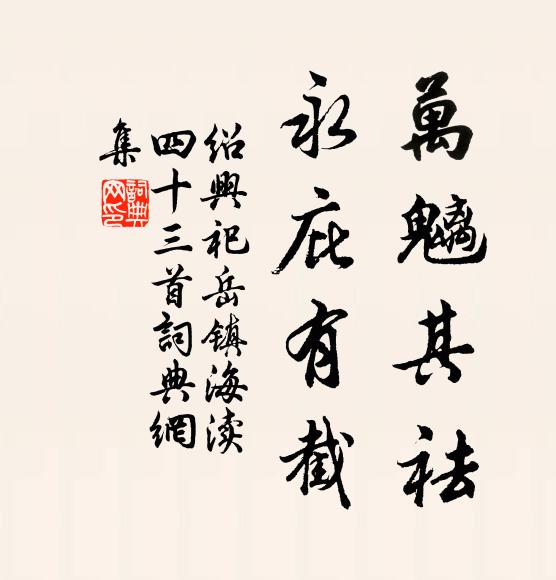 萬魑其祛
永庇有截
绍興祀岳鎮海渎
四十三首詞典網
集
詞典
网印